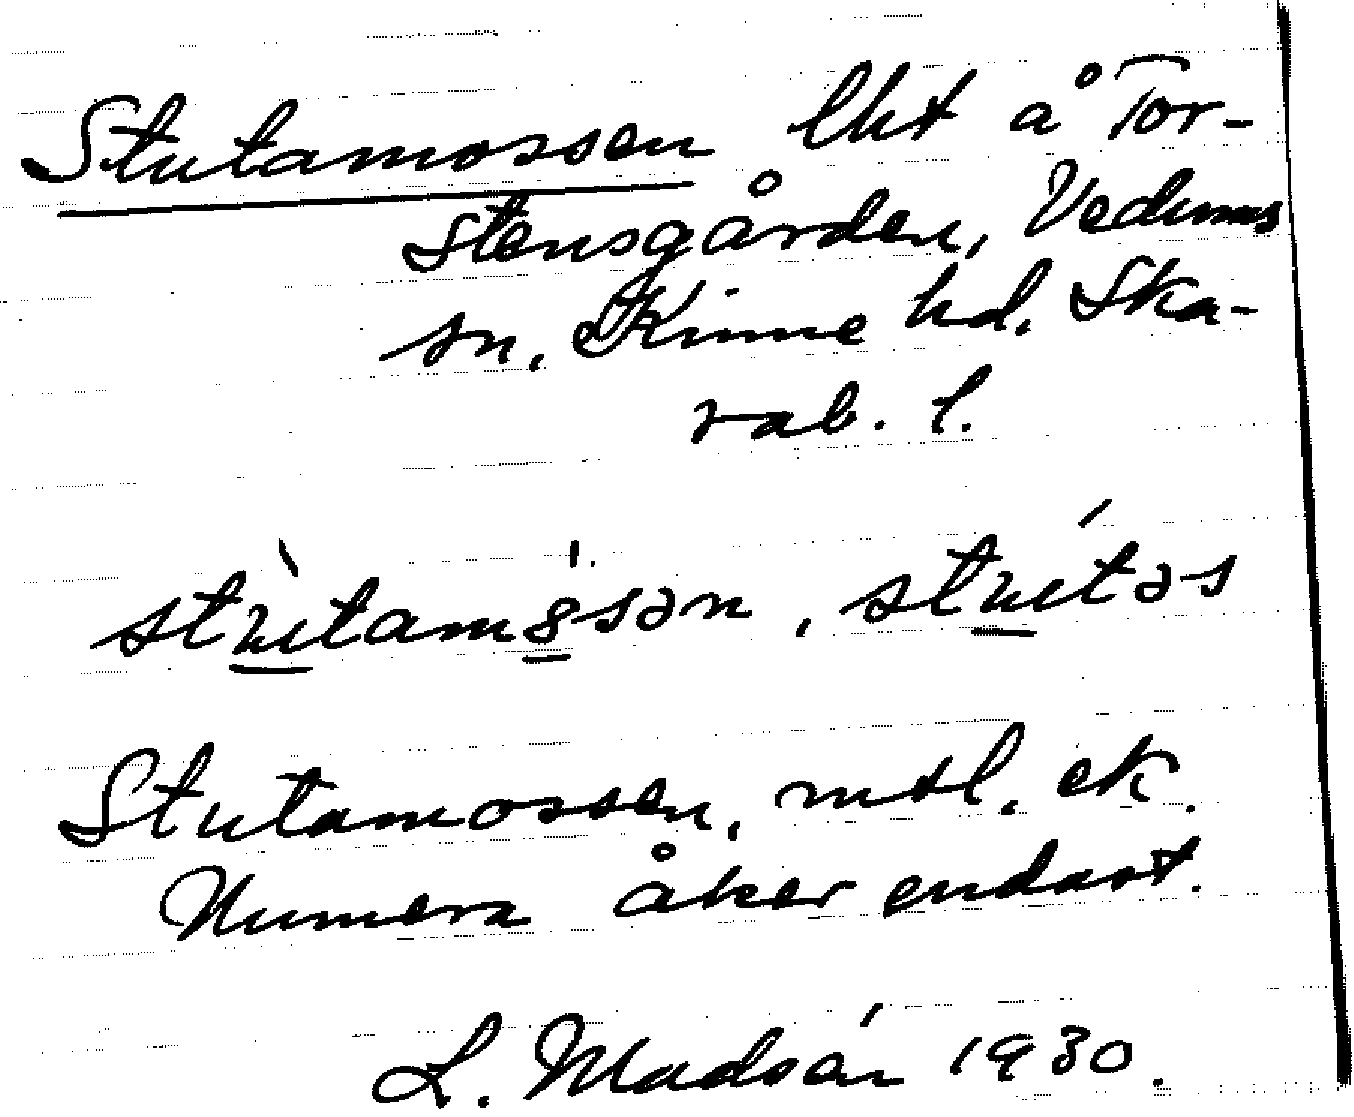 Stutamossen lht å Tor-
stensgården, Vedums
sn, Kinne hd. Ska-
rab. l.
stùtam8̍sən, stútəs
Stutamossen, mtl. ek.
Numera åker endast.
L. Madsén 1930.